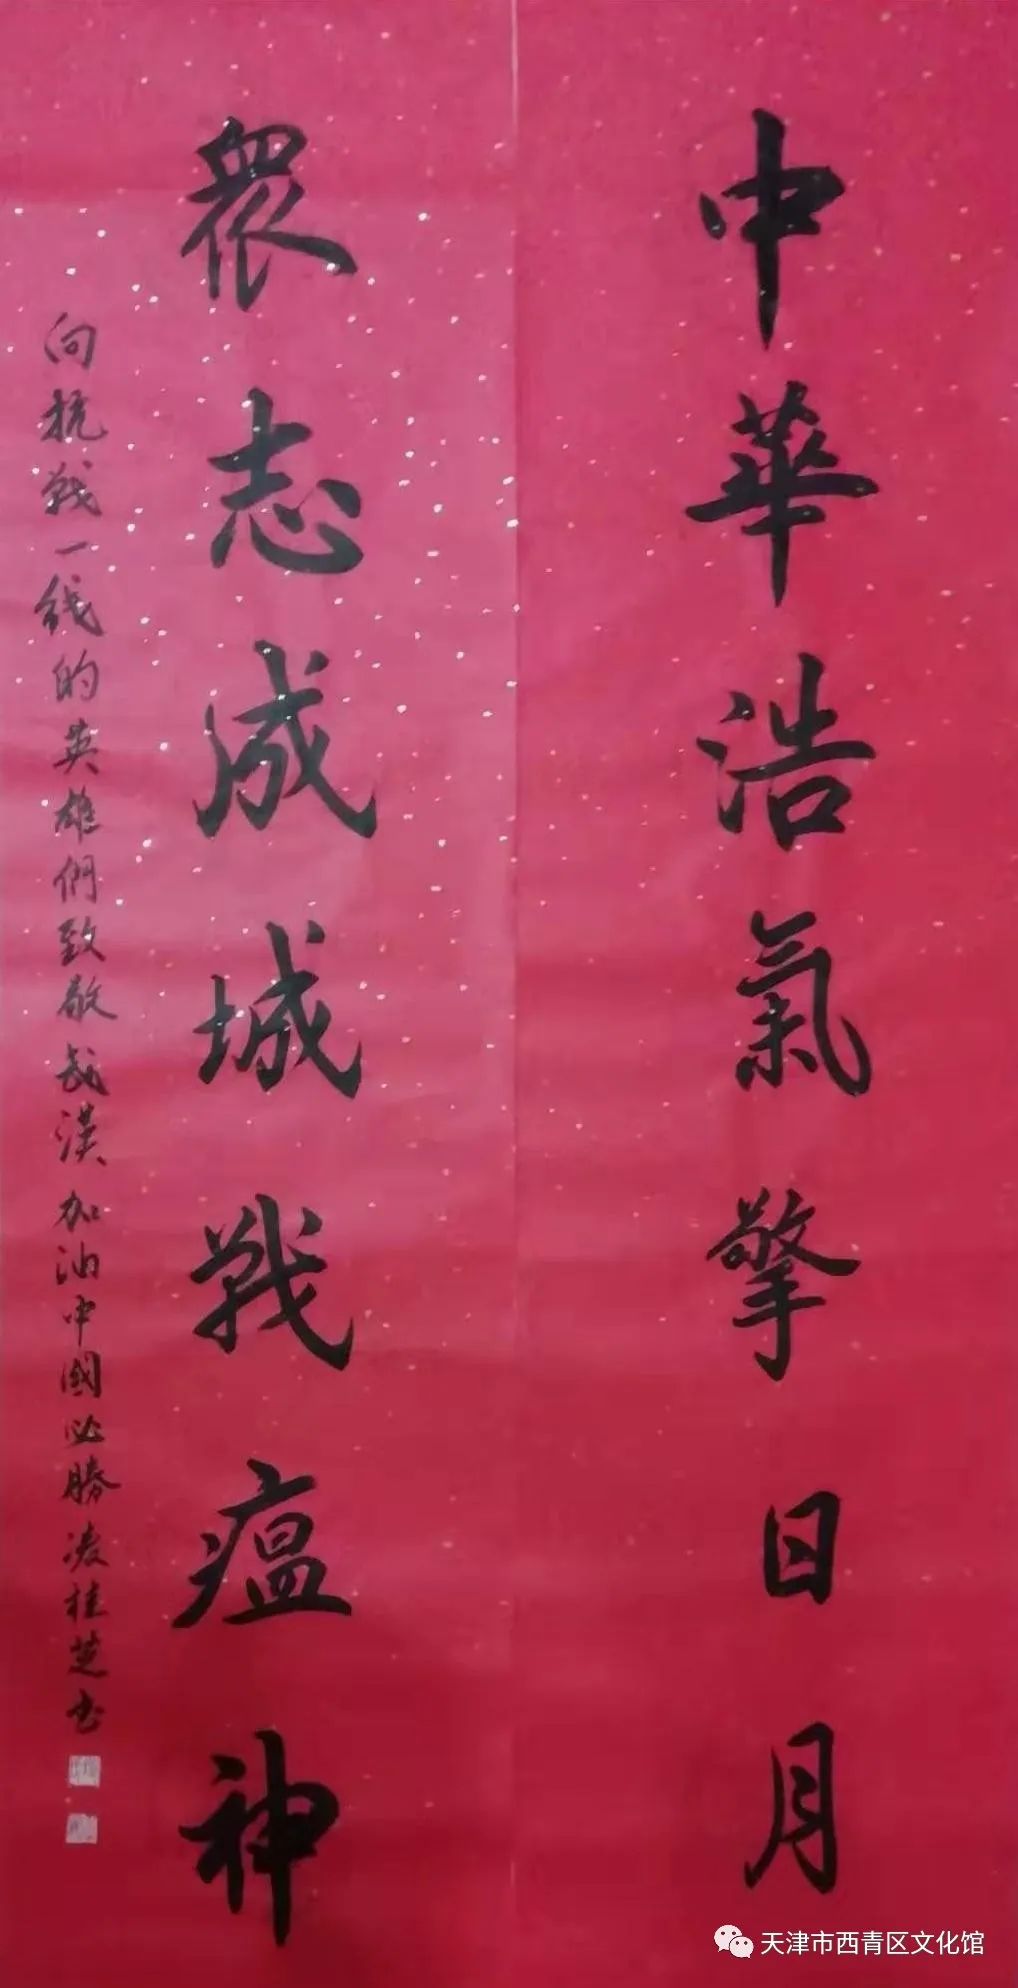 中華浩氣擎日月
眾志成城戰瘟神
向抗戰一线的英雄們致敬 武漢加油中國必勝 凌桂芝书
天津市西青区文化馆